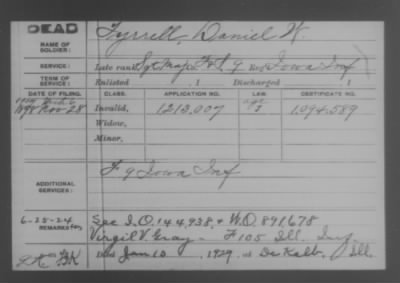 DEAD
NAME OF SOLDIER: Tyrrell, Daniel W.
SERVICE: Late rank Sgt Maj F & S 9 Reg Iowa Inf
TERM OF SERVICE: Enlisted 1 Discharged 1
DATE OF FILING. CLASS. APPLICATION NO. LAW. CERTIFICATE NO.
1898 Nov 28 Invalid, 1213,007 age 1,094,589
Widow,
Minor,
ADDITIONAL SERVICES: F 9 Iowa Inf
6-25-24 See I.O. 144,938, & W.O. 891,678
REMARKS: Virgil V. Gray - F 105 Ill. Inf.
Died Jan 10, 1929, at DeKalb, Ill.